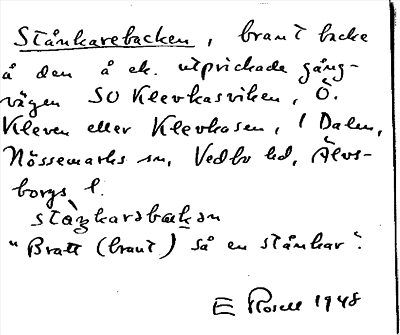 Stånkarebacken, brant backe
å den å ek. utprickade gång-
vägen SO Klevkasviken, Ö.
Kleven eller Klevkasen, i Dalen,
Nössemarks sn, Vedbo hd, Älvs-
borgs l.
stàŋkarabakən
"Bratt (brant) så en stånkar".
E Rosell 1948